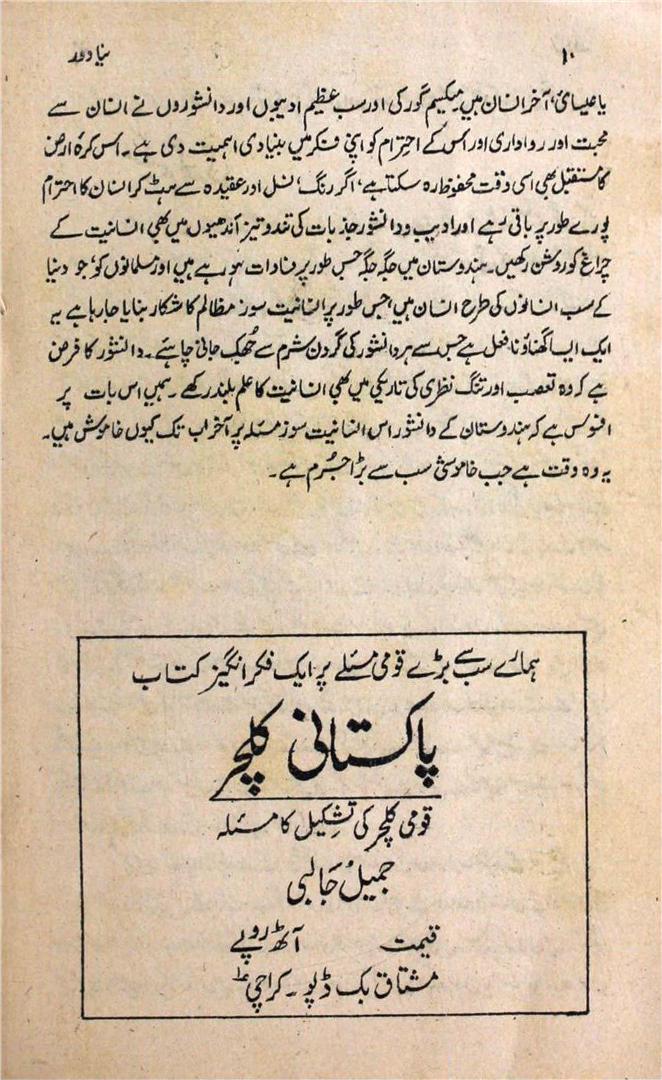 ۱۰
نیا دور
یا عیسائی، آخر انسان ہیں میکسیم گورکی اور سب عظیم ادیبوں اور دانشوروں نے انسان سے
محبت اور رواداری اور اس کے احترام کو اپنی فکر میں بنیادی اہمیت دی ہے۔ اس کرۂ ارض
کا مستقبل بھی اسی وقت محفوظ رہ سکتا ہے، اگر رنگ، نسل اور عقیدہ سے ہٹ کر انسان کا احترام
پورے طور پر باقی رہے اور ادیب و دانشور جذبات کی تند و تیز آندھیوں میں بھی انسانیت کے
چراغ کو روشن رکھیں۔ ہندوستان میں جگہ جگہ جس طور پر فسادات ہو رہے ہیں اور مسلمانوں کو، جو دنیا
کے سب انسانوں کی طرح انسان ہیں، جس طور پر انسانیت سوز مظالم کا شکار بنایا جا رہا ہے یہ
ایک ایسا گھناؤنا فعل ہے جس سے ہر دانشور کی گردن شرم سے جُھک جانی چاہئے۔ دانشور کا فرض
ہے کہ وہ تعصب اور تنگ نظری کی تاریکی میں بھی انسانیت کا علم بلند رکھے۔ ہمیں اس بات پر
افسوس ہے کہ ہندوستان کے دانشور اس انسانیت سوز مسئلہ پر آخر اب تک کیوں خاموش ہیں۔
یہ وہ وقت ہے جب خاموشی سب سے بڑا جُرم ہے۔
ہمارے سب سے بڑے قومی مسئلے پر ایک فکر انگیز کتاب
پاکستانی کلچر
قومی کلچر کی تشکیل کا مسئلہ
جمیل جالبی
قیمت آٹھ روپے
مشتاق بک ڈپو۔ کراچی